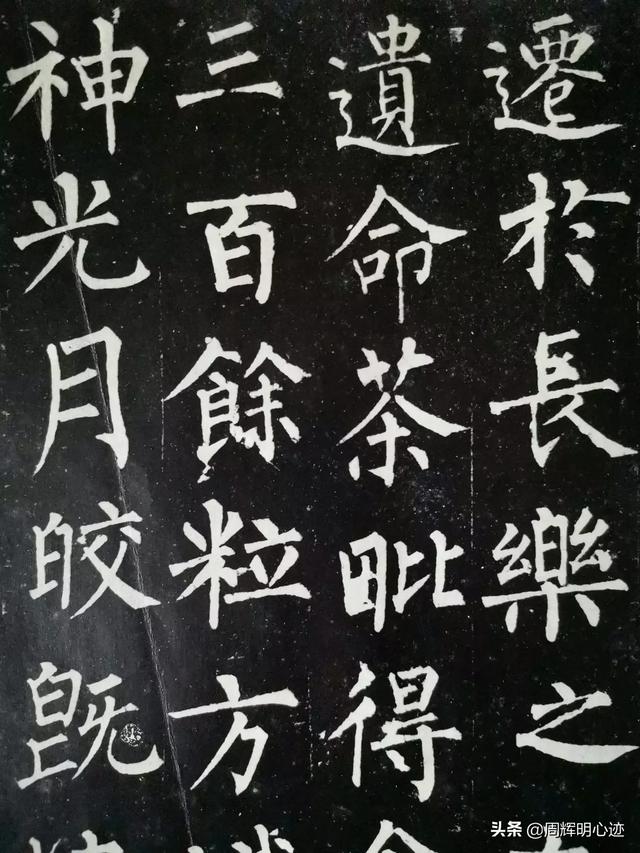 遷於長樂之
遺命荼毗得
三百餘粒方
神光月皎既
头条 @周辉明心迹